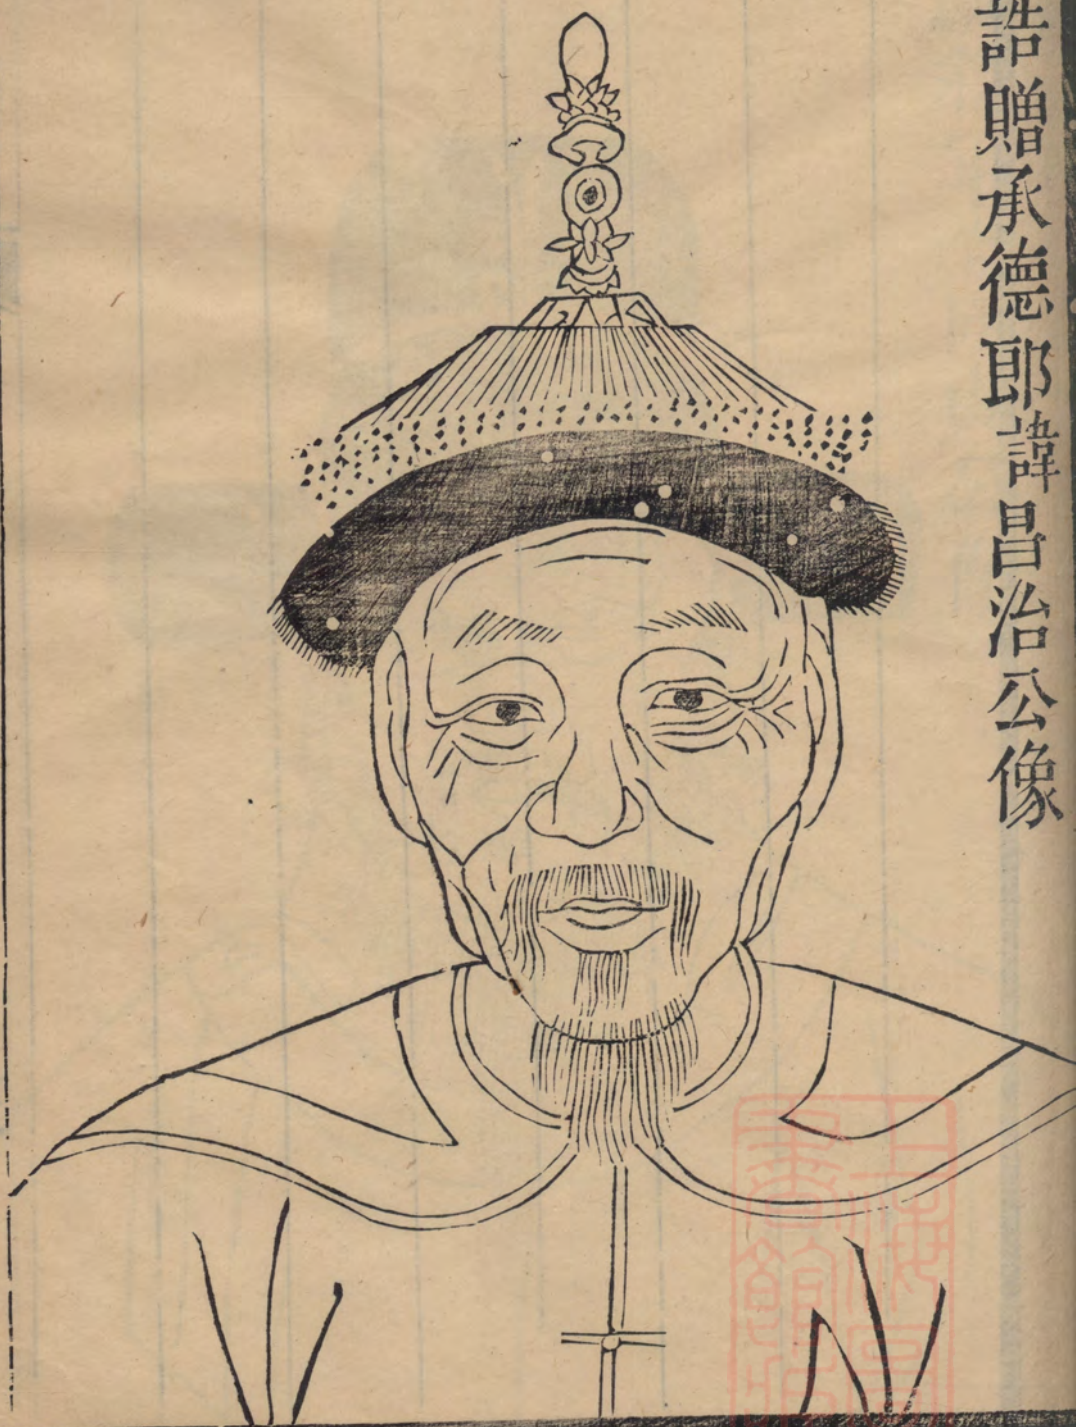 誥贈承德郎諱昌治公像